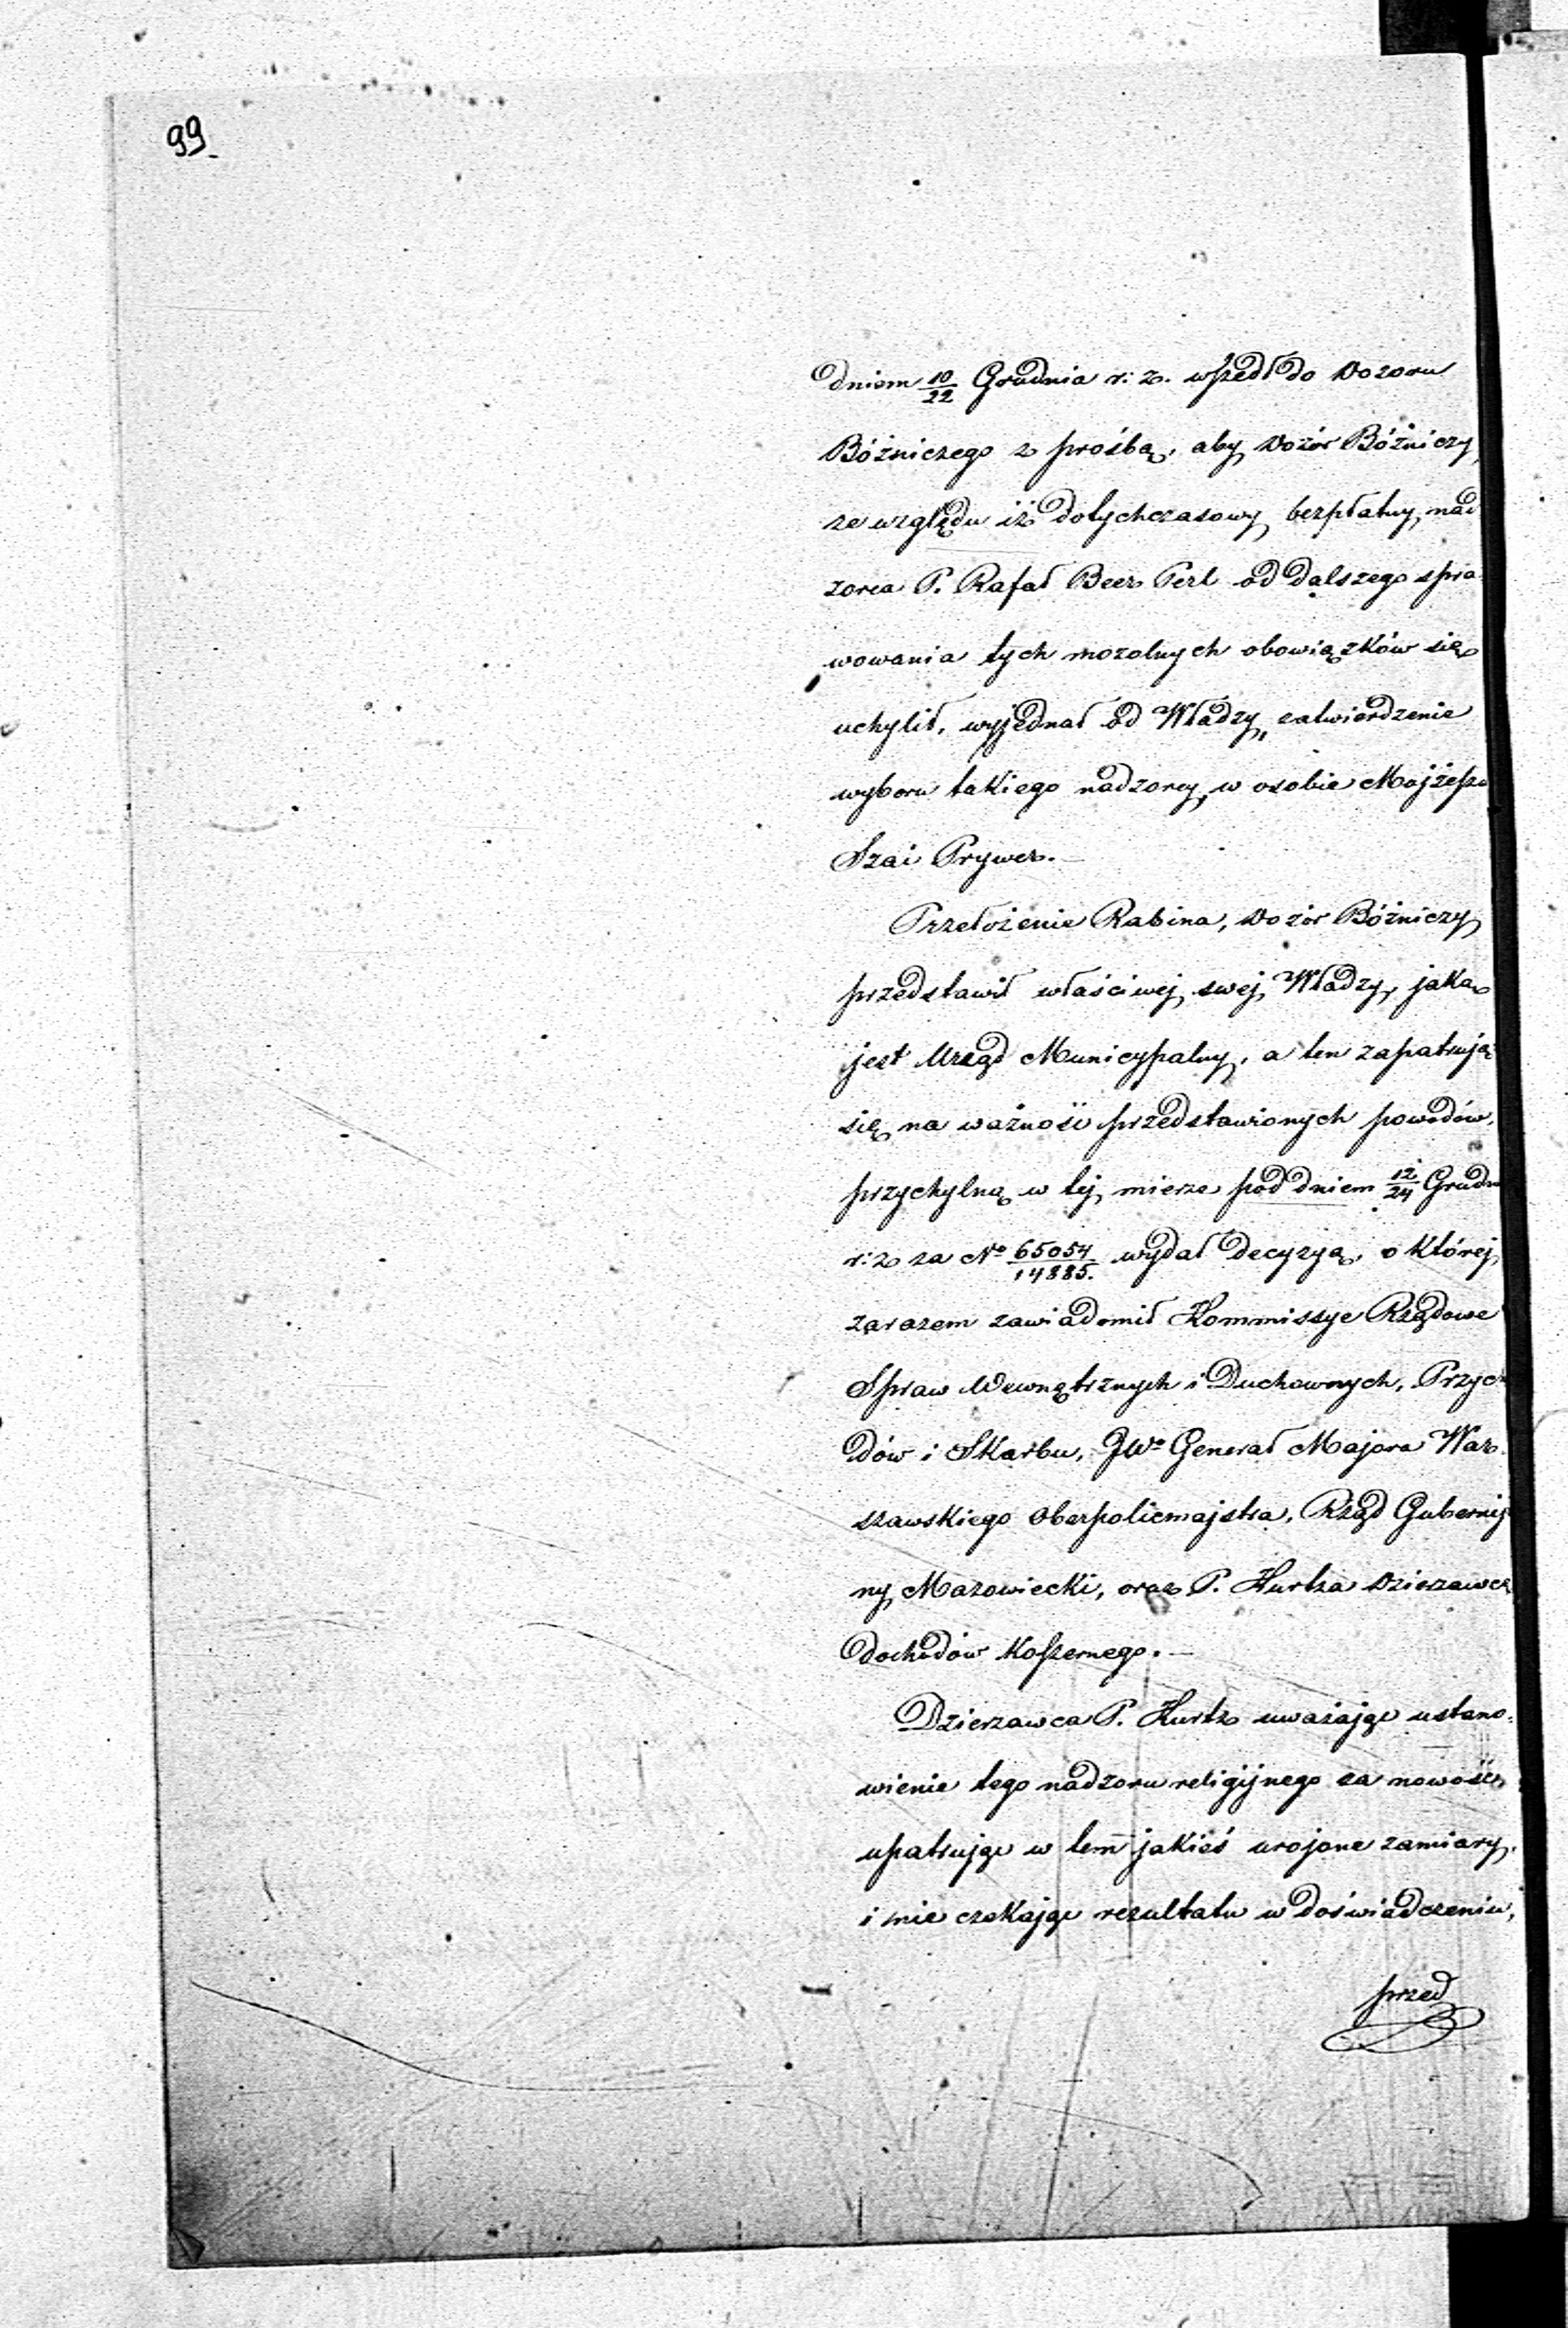 99
dniem 10/22 Grudnia r: z. wszedł do Dozoru
Bóżniczego z prośbą, aby Dozór Bóżniczy,
ze względu iż dotychczasowy bezpłatny nad
zorca P. Rafał Beer Perl od dalszego spra
wowania tych mozolnych obowiązków się
uchylił, wyjednał od Władzy, zatwierdzenie
wyboru takiego nadzorcy, w osobie Mojżesza
Szai Prywes.—
Przełożenie Rabina, Dozór Bóżniczy
przedstawił właściwej swej Władzy, jaką
jest Urząd Municypalny, a ten zapatrując
się na ważność przedstawionych powodów,
przychylną w tej mierze pod dniem 12/24 Grudn
r: z za No 65054/14885. wydał decyzyą, o której
zarazem zawiadomił Kommissye Rządowe
Spraw Wewnętrznych i Duchownych, Przycho
dów i Skarbu, JWo Generał Majora War
szawskiego Oberpolicmajstra, Rząd Gubernij
ny Mazowiecki, oraz P. Kurtza Dzierzawcę
dochodów koszernego.—
Dzierzawca P. Kurtz uważając ustano=
wienie tego nadzoru religijnego za nowość,
upatrując w tem jakieś urojone zamiary,
i nie czekając rezultatu w doświadczeniu,
przed